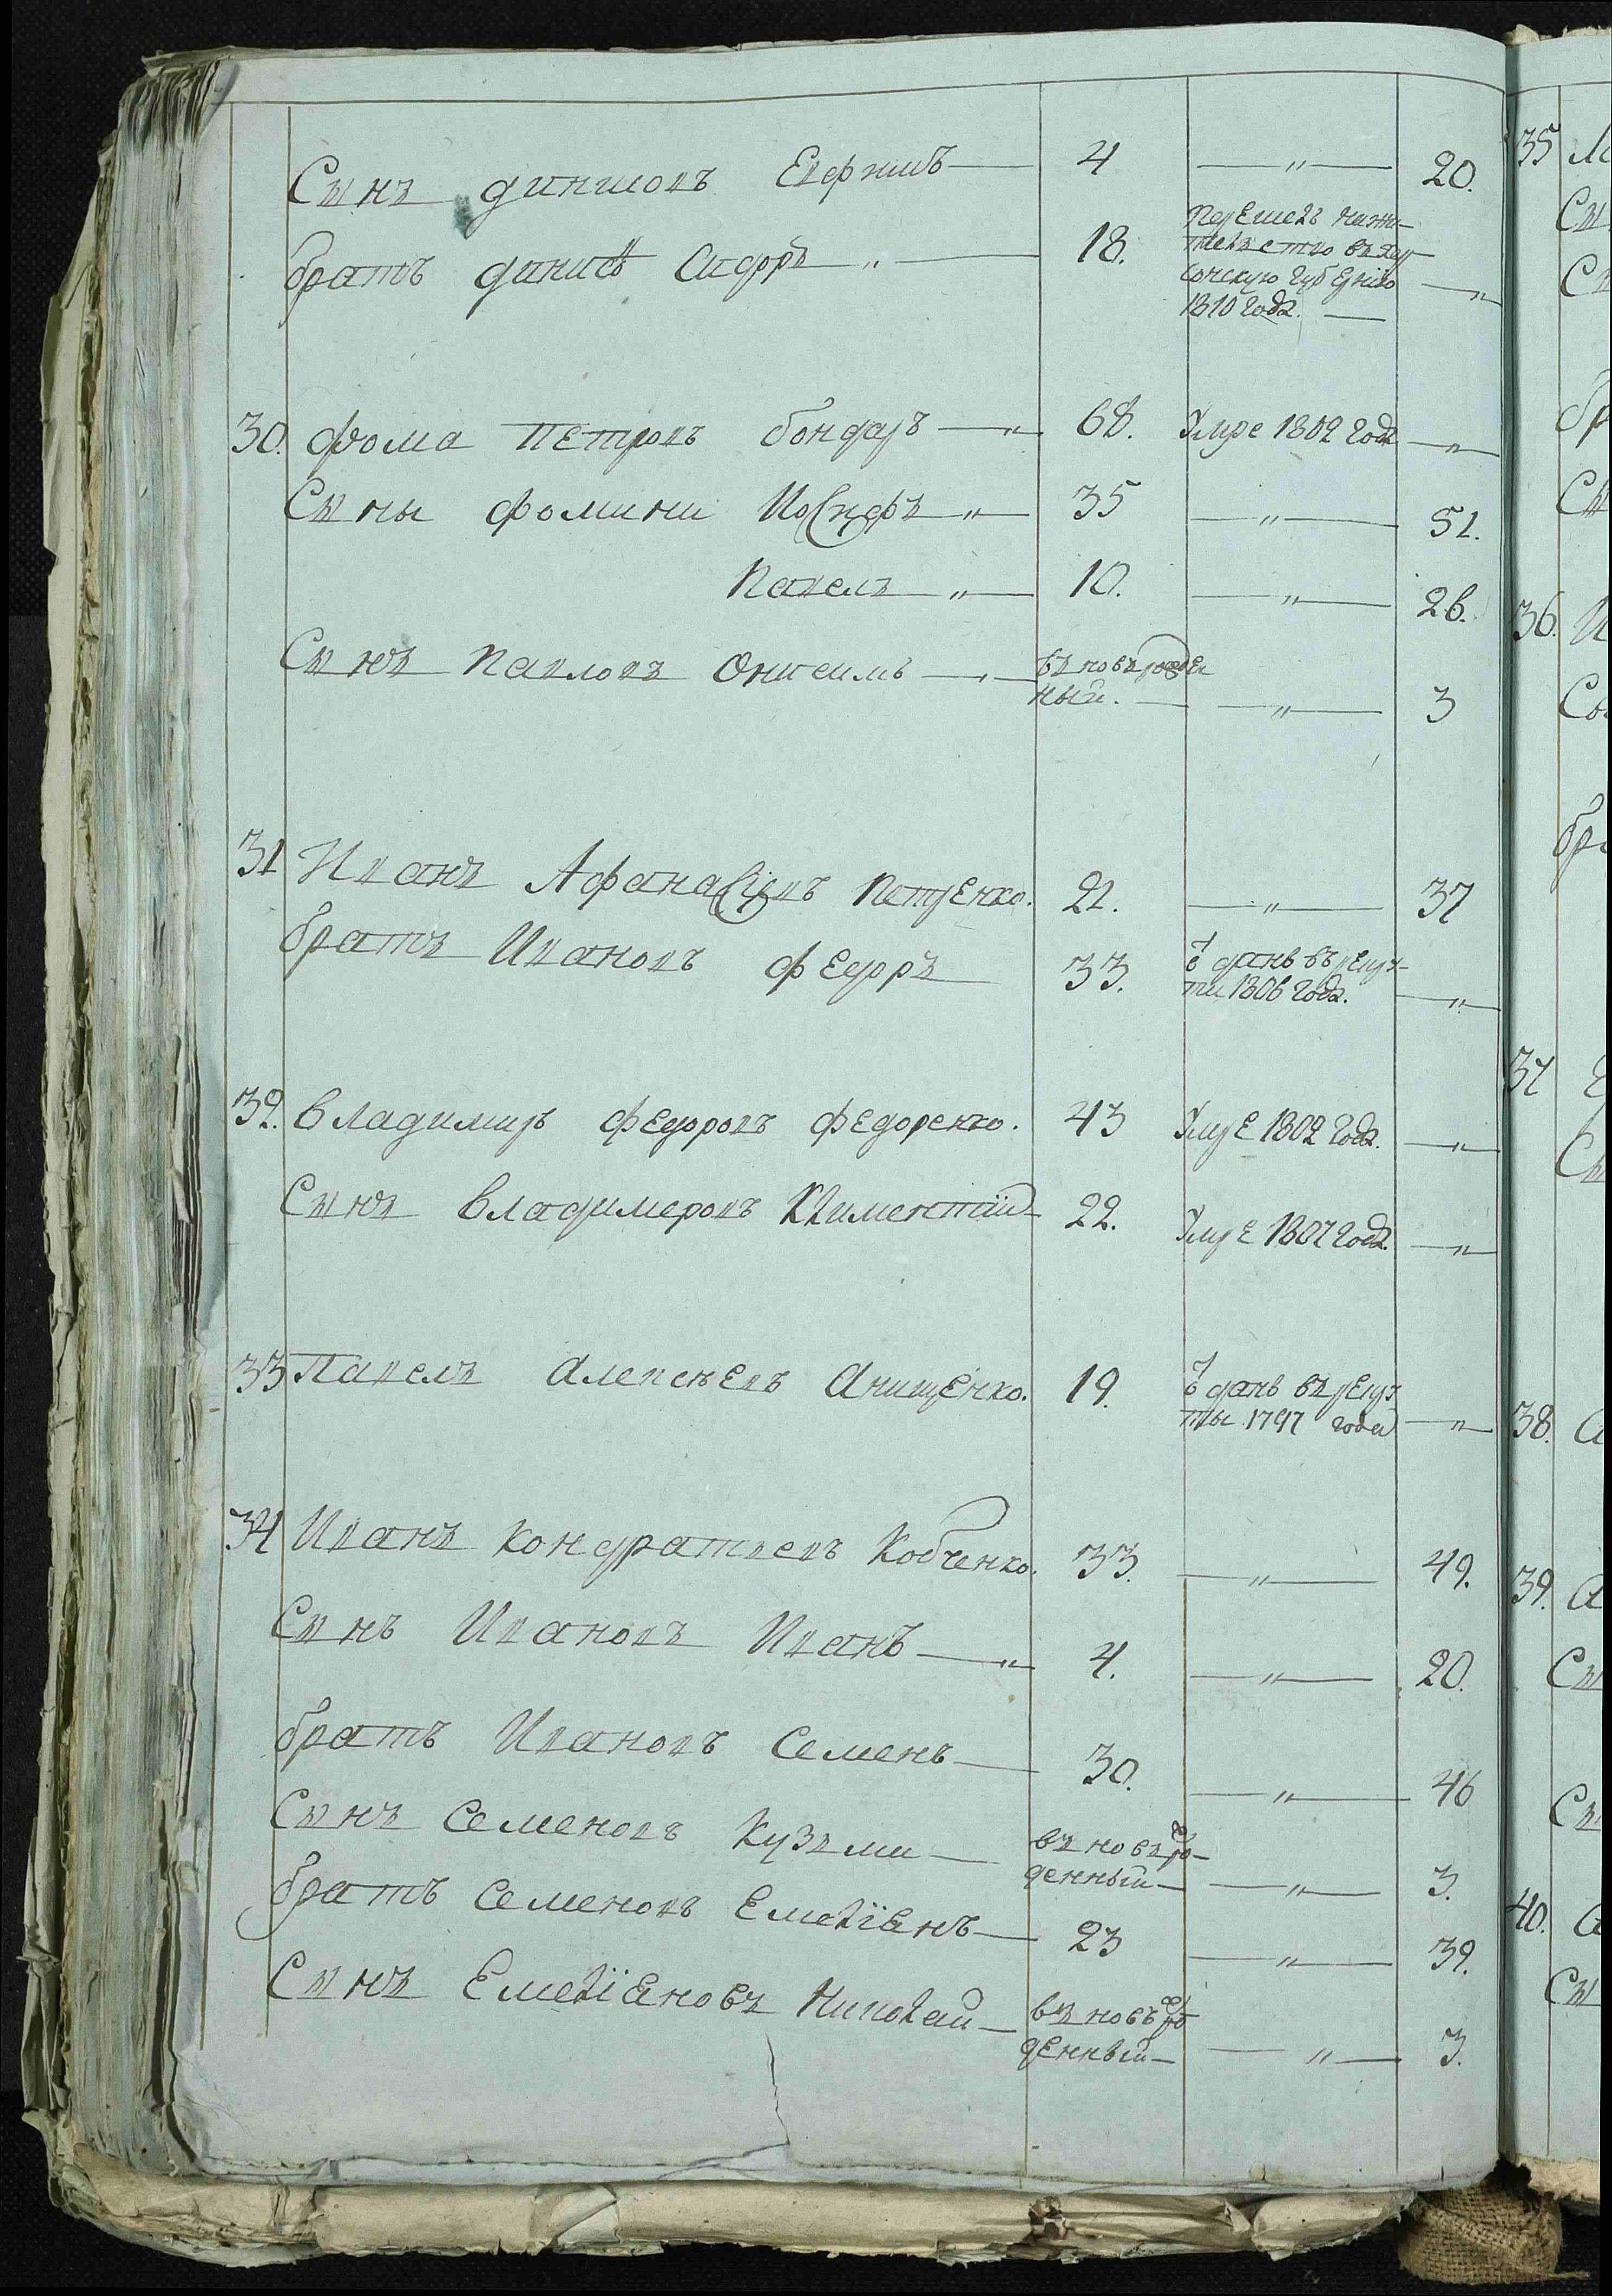 Сынъ динисовъ Евфимъ — 4 — „ — 20.
братъ динисъ Сидоръ „ — 18. Перешелъ на жи-
тельство въ хер-
сонскую губернію — „ —
1810 года. —
30. фома петровъ бондаръ — „ — 68. Умре 1802 года — „ —
Сыны фомини Иосифъ — „ — 35 — „ — 51.
Павелъ — „ — 10. — „ — 26.
Сынъ Павловъ Онисимъ — „ — въновърожден
ный. — — „ — 3
31 Иванъ Афанасіевъ Петренко. 21. — „ — 37
братъ Ивановъ федоръ — 33. отданъ въ рекру-
ти 1806 года. — „ —
32. владимиръ федоровъ федоренко. 43 Умре 1802 года. — „ —
Сынъ владимеровъ Климентий — 22. Умре 1807 года. — „ —
33 Павелъ алексѣевъ анищенко. 19. отданъ въ рекру
ты 1797 года — „ —
34 Иванъ кондратьевъ кобченко. 33. — „ — 49.
Сынъ Ивановъ Иванъ — „ — 4. — „ — 20.
братъ Ивановъ Семенъ — 30. — „ — 46
Сынъ Семеновъ кузьми — въновъро-
денный — — „ — 3.
братъ Семеновъ Емеліянъ — 23 — „ — 39.
Сынъ Емеліяновъ Николай — въновъро
денный — — „ — 3.
35
Сы
36.
бр
37
38.
39.
40.